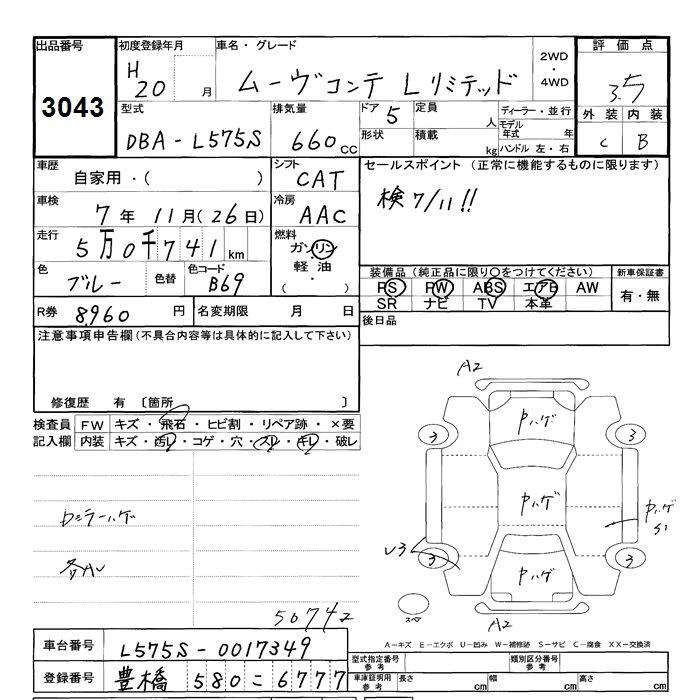 出品番号 初度登録年月 車名・グレード 2WD・4WD 評価点
3043 H20 月 ムーヴコンテ Lリミテッド 3.5
型式 排気量 ドア 5 定員 人 ディーラー・並行 外装 内装
DBA-L575S 660cc 形状 積載 kg モデル年式 年 ハンドル 左・右 C B
車歴 自家用・( ) シフト CAT セールスポイント (正常に機能するものに限ります)
車検 7年11月(26日) 冷房 AAC 検7/11!!
走行 5万0千741km 燃料 ガソリン 軽油 ( ・ )
色 ブルー 色替 色コード B69 装備品 (純正品に限り〇をつけてください) 新車保証書
PS PW ABS エアB AW 有・無
SR ナビ TV 本革
R券 8,960円 名変期限 月 日 後日品
注意事項申告欄(不具合内容等は具体的に記入して下さい)
修復歴 有 〔箇所 〕
検査員 FW キズ・飛石・ヒビ割・リペア跡・×要
記入欄 内装 キズ・汚レ・コゲ・穴・スレ・キレ・破レ
A2
Pハゲ
3 3
Pハゲ
Pハゲ S1
3 3
Pハゲ
スペア
A2
50742
A-キズ E-エクボ U-凹み W-補修跡 S-サビ C-腐食 XX-交換済
車台番号 L575S-0017349 型式指定番号 参考 類別区分番号 参考
登録番号 豊橋 580 こ 6777 車庫証明用 参考 長さ cm 幅 cm 高さ cm